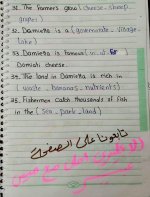 31. The farmers grow (cheese - sheep
grapes)
32. Damietta is a (governorate - village -
lake)
33. Damietta is famous for its
Domiati cheese.
34. The land in Damietta is rich in
(waste - bananas - nutrients)
35. Fishermen catch thousands of fish
in the (sea - park - land)
تابعونا على الصفحة